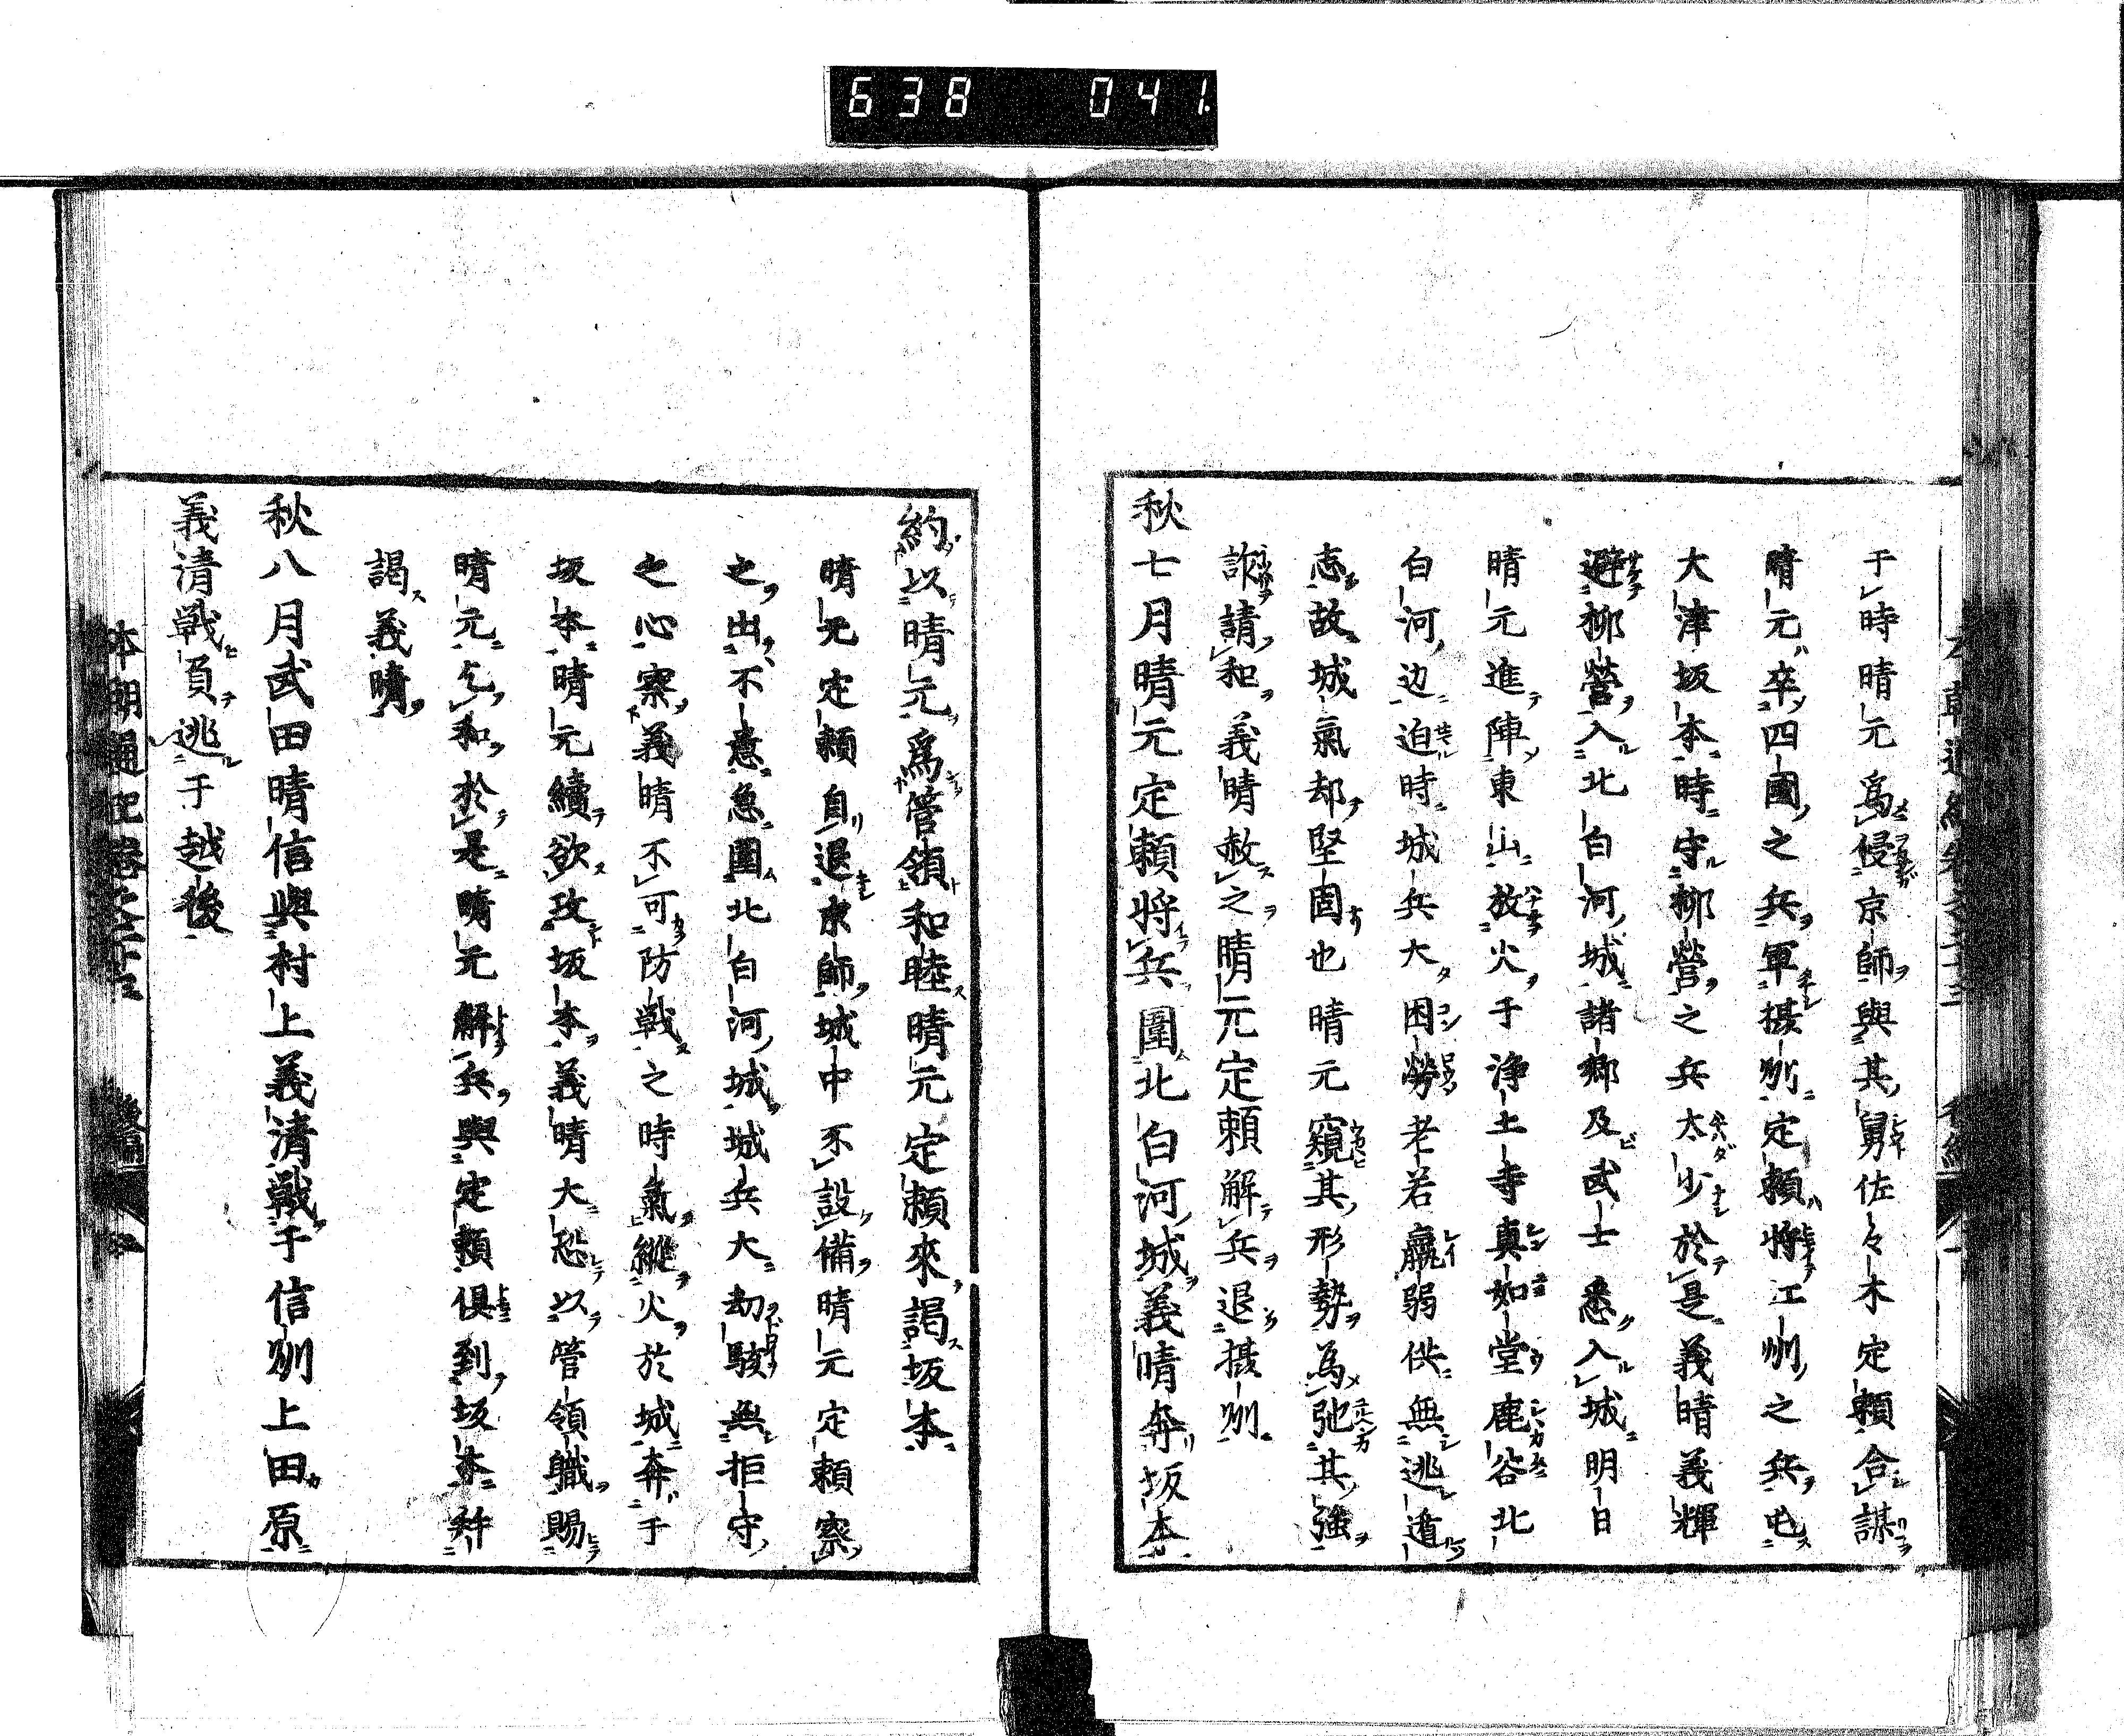 638 041.
于時晴元爲侵京師與其舅佐々木定頼合謀
晴元卒四國之兵軍摂州定頼將江州之兵屯
大津坂本時守柳營之兵太少於是義晴義輝
避柳營入北白河城諸郷及武士悉入城明日
晴元進陣東山放火于浄土寺真如堂鹿谷北
白河辺迫時城兵大困勞老若羸弱供無逃遁
志故城氣却堅固也晴元窺其形勢為弛其強
詐請和義晴赦之晴元定頼解兵退摂州
秋七月晴元定頼將兵圍北白河城義晴奔坂本
約以晴元爲管領和睦晴元定頼來謁坂本
晴元定頼自退京師城中不設備晴元定頼察
之出不意急圍北白河城城兵大劫駭無拒守
之心察義晴不可防戦之時氣縱火於城奔于
坂本晴元續欲攻坂本義晴大恐以管領職賜
晴元乞和於是晴元解兵與定頼俱到坂本幷
謁義晴
秋八月武田晴信與村上義清戦于信州上田原
義清戦負逃于越後
本朝通紀巻之十三 後編